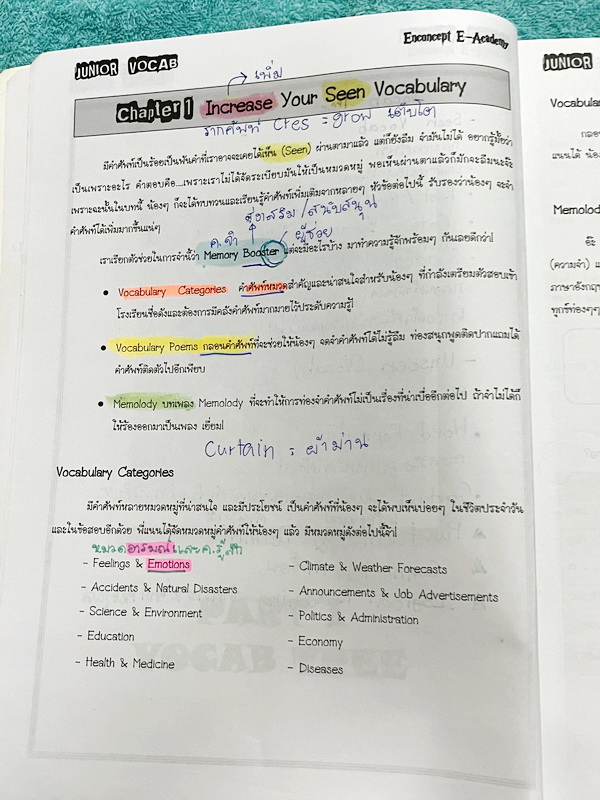 Enconcept E-Academy
JUNIOR VOCAB
JUNIOR
เพิ่ม
Chapter 1 Increase Your Seen Vocabulary
รากศัพท์ Cres = grow เติบโต
มีคำศัพท์เป็นร้อยเป็นพันคำที่เราอาจจะเคยได้เห็น (Seen) ผ่านตามาแล้ว แต่ก็ยังลืม จำมันไม่ได้ อยากรู้มั้ยว่า
เป็นเพราะอะไร คำตอบคือ...เพราะเราไม่ได้จัดระเบียบมันให้เป็นหมวดหมู่ พอเห็นผ่านตาแล้วก็มักจะลืมนะจ๊ะ
เพราะฉะนั้นในบทนี้ น้องๆ ก็จะได้ทบทวนและเรียนรู้คำศัพท์เพิ่มเติมจากหลายๆ หัวข้อต่อไปนี้ รับรองว่าน้องๆ จะจำ
คำศัพท์ได้เพิ่มมากขึ้นแน่ๆ
ส่งเสริม / สนับสนุน
ค.จำ
ผู้ช่วย
เราเรียกตัวช่วยในการจำนี้ว่า Memory Booster แต่จะมีอะไรบ้าง มาทำความรู้จักพร้อมๆ กันเลยดีกว่า!
• Vocabulary Categories คำศัพท์หมวดสำคัญและน่าสนใจสำหรับน้องๆ ที่กำลังเตรียมตัวสอบเข้า
โรงเรียนชื่อดังและต้องการมีคลังคำศัพท์มากมายไว้ประดับความรู้!
• Vocabulary Poems กลอนคำศัพท์ที่จะช่วยให้น้องๆ จดจำคำศัพท์ได้ไม่รู้ลืม ท่องสนุกพูดติดปากแถมได้
คำศัพท์ติดตัวไปอีกเพียบ
• Memolody บทเพลง Memolody ที่จะทำให้การท่องจำคำศัพท์ไม่เป็นเรื่องที่น่าเบื่ออีกต่อไป ถ้าจำไม่ได้ก็
ให้ร้องออกมาเป็นเพลง เยี่ยม!
Curtain = ผ้าม่าน
Vocabulary Categories
มีคำศัพท์หลายหมวดหมู่ที่น่าสนใจ และมีประโยชน์ เป็นคำศัพท์ที่น้องๆ จะได้พบเห็นบ่อยๆ ในชีวิตประจำวัน
และในข้อสอบอีกด้วย พี่แนนได้จัดหมวดหมู่คำศัพท์ให้น้องๆ แล้ว มีหมวดหมู่ดังต่อไปนี้จ้า!
หมวดอารมณ์และค.รู้สึก
- Feelings & Emotions
- Accidents & Natural Disasters
- Science & Environment
- Education
- Health & Medicine
- Climate & Weather Forecasts
- Announcements & Job Advertisements
- Politics & Administration
- Economy
- Diseases